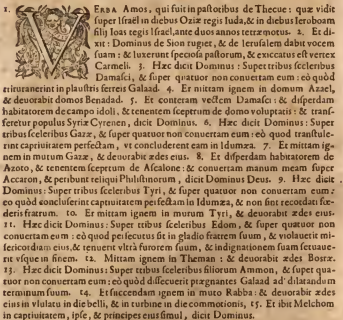 1. VERBA Amos, qui fuit in pastoribus de Thecue: quæ vidit
super Israël in diebus Oziæ regis Iuda, & in diebus Ieroboam
filij Ioas regis Israel, ante duos annos terræmotus. 2. Et di-
xit: Dominus de Sion rugiet, & de Ierusalem dabit vocem
suam: & luxerunt speciosa pastorum, & exiccatus est vertex
Carmeli. 3. Hæc dicit Dominus: Super tribus sceleribus
Damasci, & super quatuor non conuertam eum: eò quòd
triturauerint in plaustris ferreis Galaad. 4. Et mittam ignem in domum Azael,
& deuorabit domos Benadad. 5. Et conteram vectem Damasci: & disperdam
habitatorem de campo idoli, & tenentem sceptrum de domo voluptatis: & trans-
feretur populus Syriæ Cyrenen, dicit Dominus. 6. Hæc dicit Dominus: Super
tribus sceleribus Gazæ, & super quatuor non conuertam eum: eò quod transtule-
rint captiuitatem perfectam, vt concluderent eam in Idumæa. 7. Et mittam ig-
nem in murum Gazæ, & deuorabit ædes eius. 8. Et disperdam habitatorem de
Azoto, & tenentem sceptrum de Ascalone: & conuertam manum meam super
Accaron, & peribunt reliqui Philisthinorum, dicit Dominus Deus. 9. Hæc dicit
Dominus: Super tribus sceleribus Tyri, & super quatuor non conuertam eum:
eo quòd concluserint captiuitatem perfectam in Idumæa, & non sint recordati fœ-
deris fratrum. 10. Et mittam ignem in murum Tyri, & deuorabit ædes eius.
11. Hæc dicit Dominus: Super tribus sceleribus Edom, & super quatuor non
conuertam eum: eò quod persecutus sit in gladio fratrem suum, & violauerit mi-
sericordiam eius, & tenuerit vltrà furorem suum, & indignationem suam seruaue-
rit vsque in finem. 12. Mittam ignem in Theman: & deuorabit ædes Bosræ.
13. Hæc dicit Dominus: Super tribus sceleribus filiorum Ammon, & super qua-
tuor non conuertam eum: eò quòd dissecuerit prægnantes Galaad ad dilatandum
terminum suum. 14. Et succendam ignem in muro Rabba: & deuorabit ædes
eius in vlulatu in die belli, & in turbine in die commotionis, 15. Et ibit Melchom
in captiuitatem, ipse, & principes eius simul, dicit Dominus.